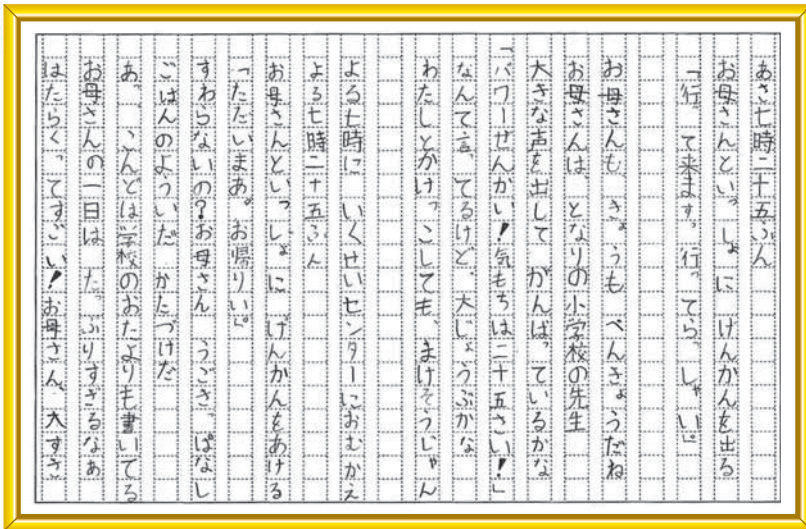 あさ七時二十五ぷん
お母さんといっしょに げんかんを出る
「行って来ます。行ってらっしゃい。」
お母さんも、きょうも べんきょうだね
お母さんは、となりの小学校の先生
大きな声を出して がんばっているかな
「パワーぜんかい！気もちは二十五さい！」
なんて言ってるけど、大じょうぶかな
わたしとかけっこしても、まけそうじゃん
よる七時に いくせいセンターにおむかえ
よる七時二十五ふん
お母さんといっしょに げんかんをあける
「ただいまあ。お帰りい。」
すわらないの？お母さん うごきっぱなし
ごはんのよういだ かたづけだ
あっ、こんどは学校のおたよりも書いてる
お母さんの一日は たっぷりすぎるなあ
はたらくってすごい！お母さん、大すき